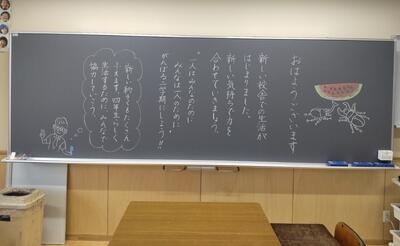 おはようございます
新しい校舎での生活が
はじまりました。
新しい気持ちで力を
合わせていきましょう。
一人はみんなのために
みんなは一人のために
がんばる二学期にしよう!!
新しい約そくもたくさん
ふえます。四年生らしく
生活するために、みんなで
協力していこう。